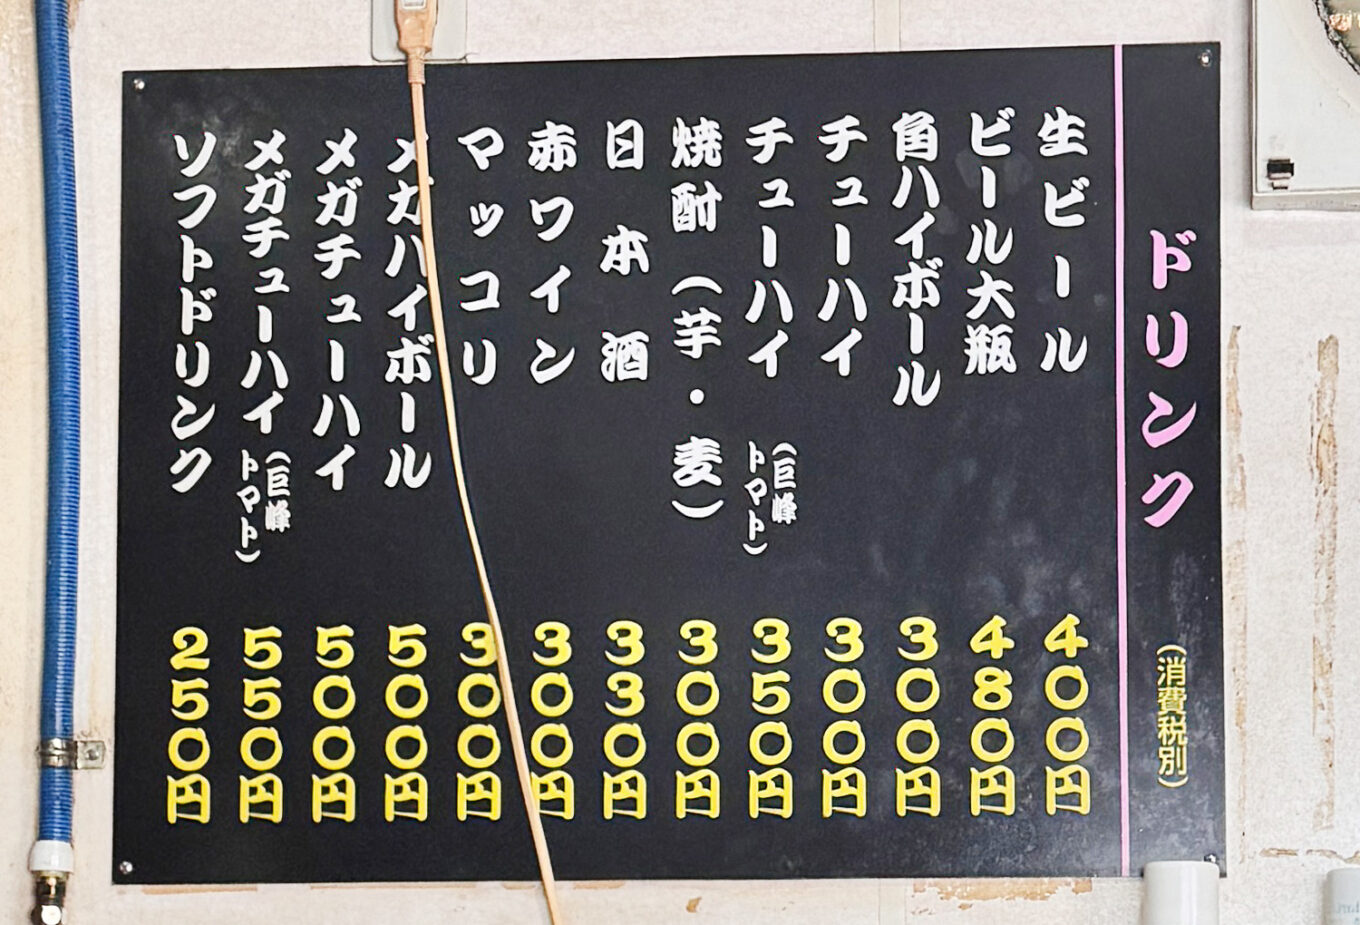 ドリンク
(消費税別)
生ビール 400円
ビール大瓶 480円
角ハイボール 300円
チューハイ 300円
チューハイ (巨峰 トマト) 350円
焼酎(芋・麦) 300円
日本酒 330円
赤ワイン 300円
マッコリ 300円
メガハイボール 500円
メガチューハイ 500円
メガチューハイ (巨峰 トマト) 550円
ソフトドリンク 250円